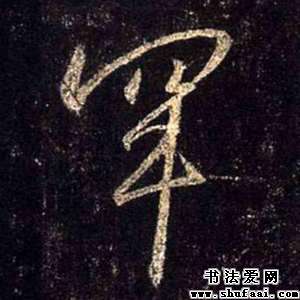 罕
书法爱网
www.shufaai.com